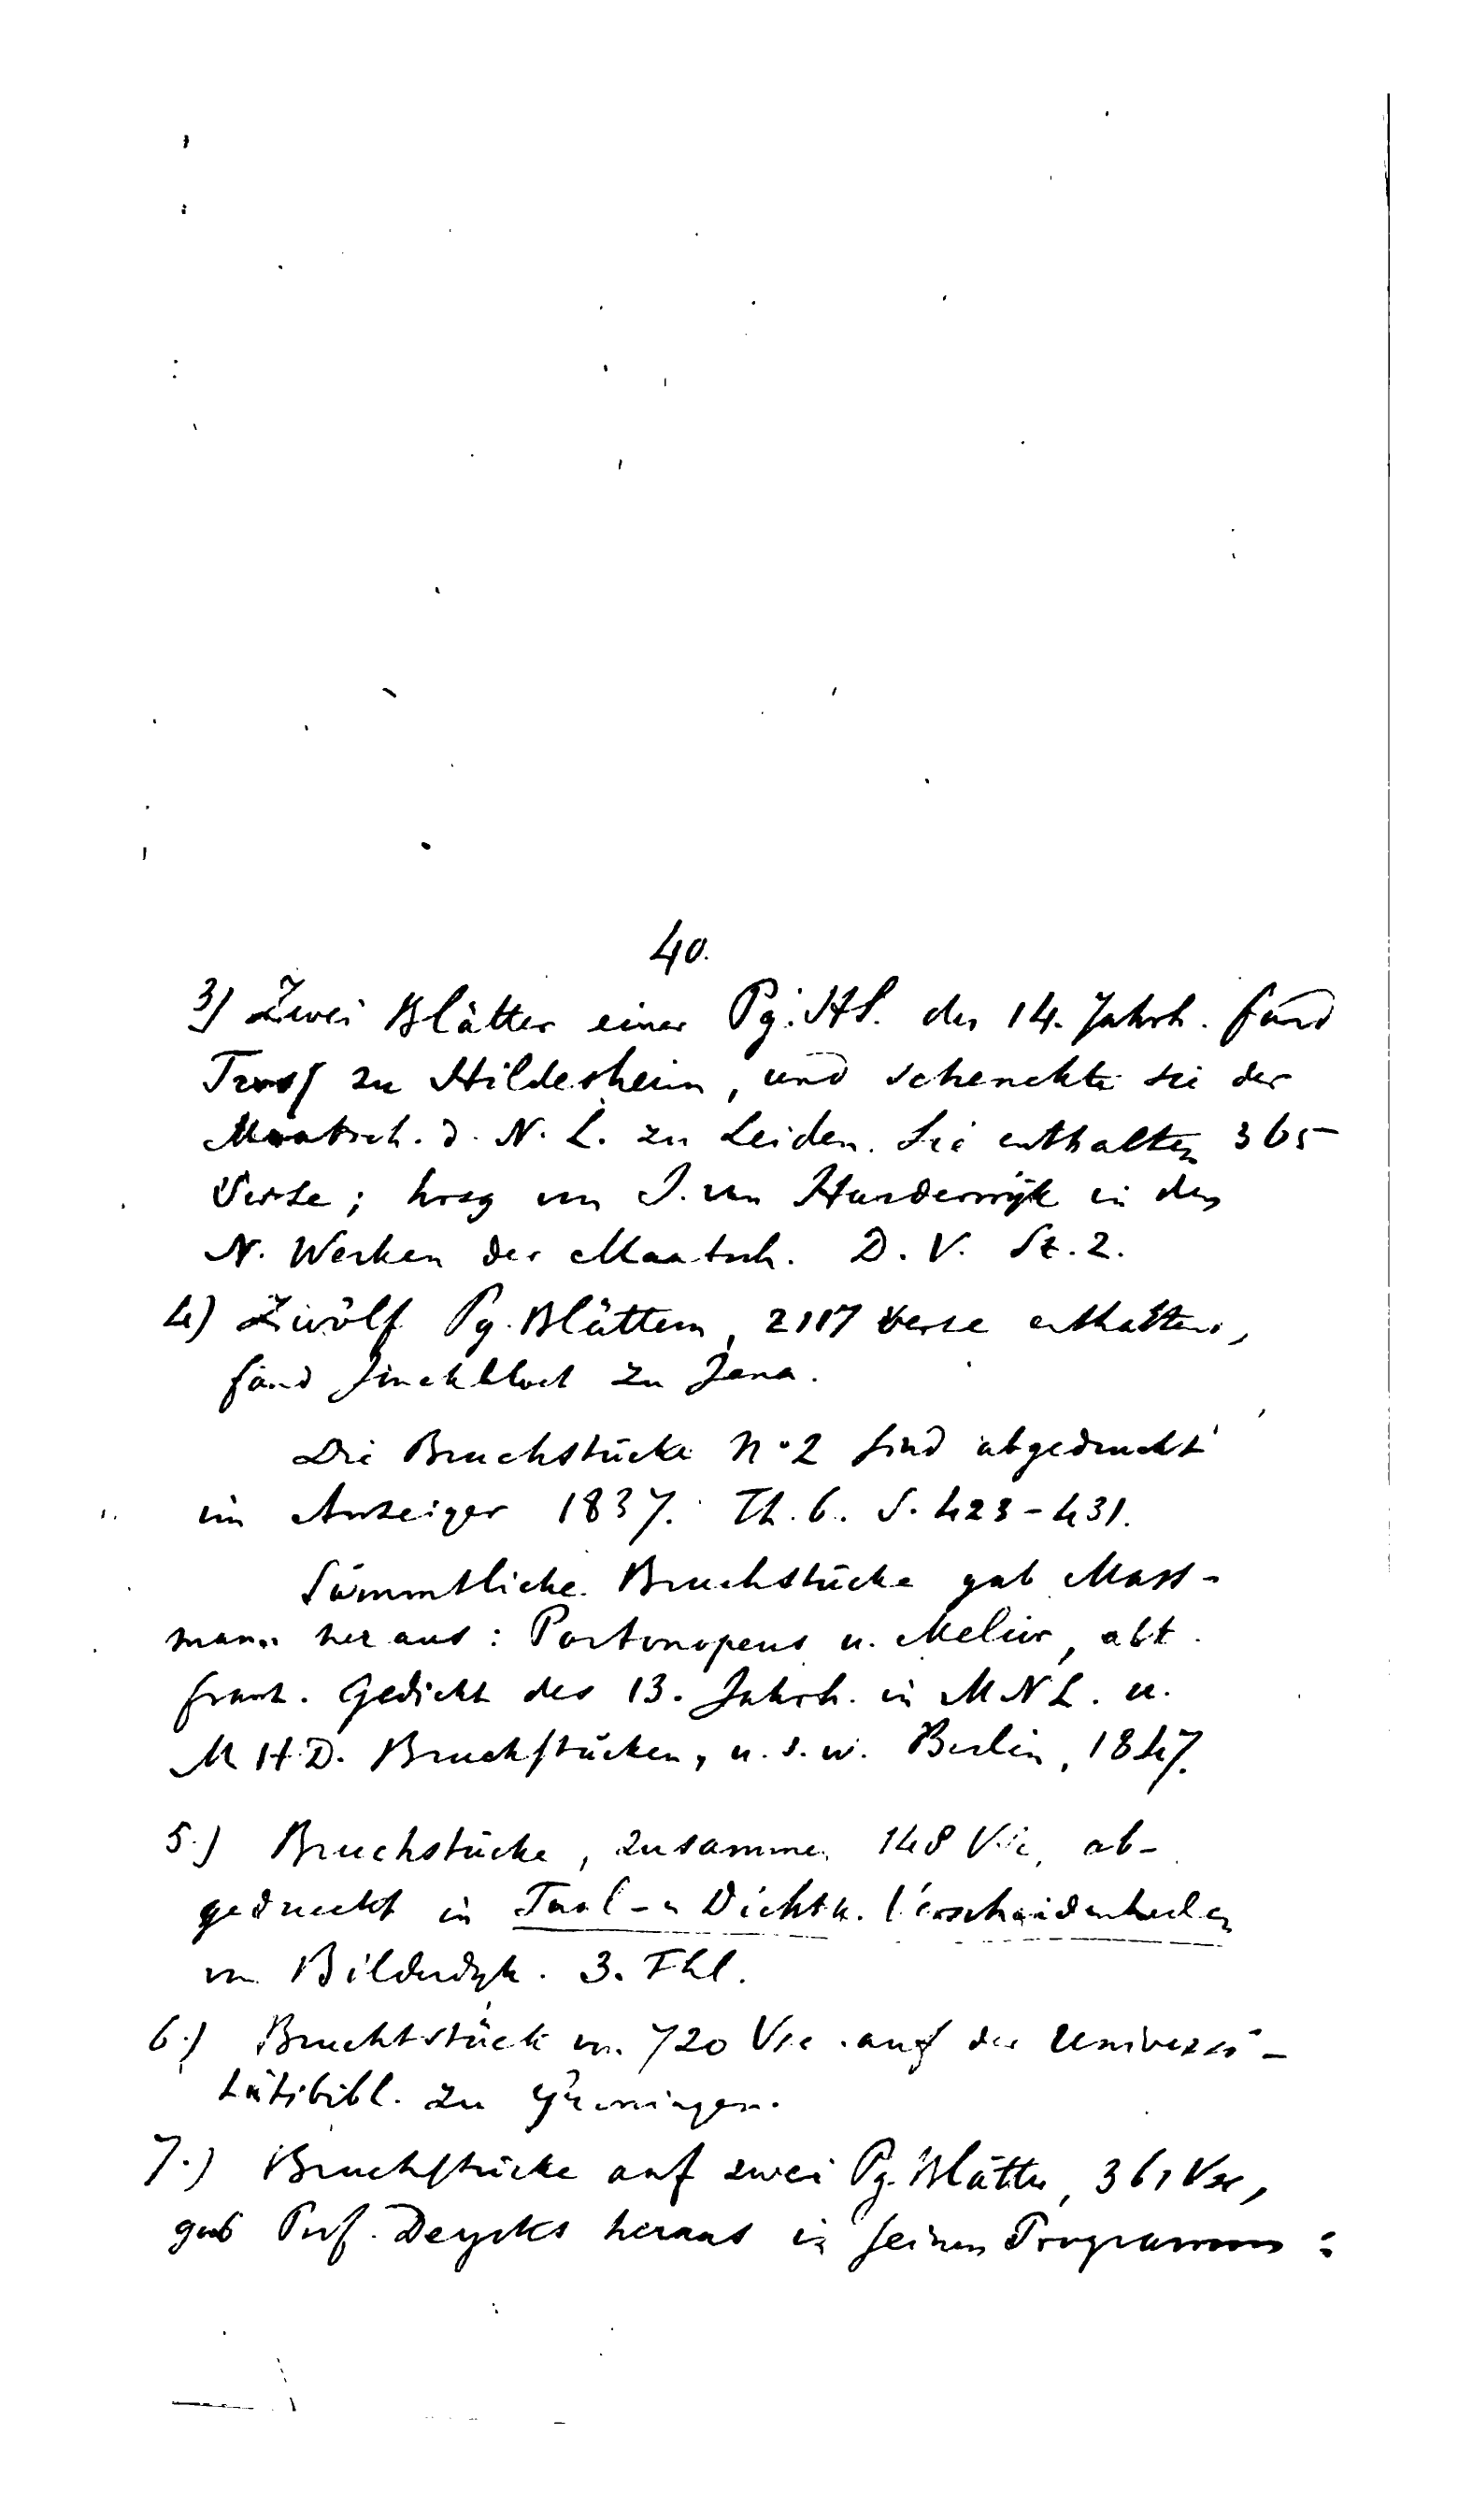 40.
3) Zwei Blätter einer Pg. HS. des 14. Jahrh. fand
Tross zu Hildesheim, und schenckte sie der
Maatsch. d. N. L. zu Leiden. Sie enthalten 365
Verse; hrsg von J. van Harderwijk in den
N. Werken der Maatsch. D. V. St. 2.
4) Zwölf Pg. Blättern, 2117 Verse enthaltend,
fand Jonckbloet zu Jena.
Die Bruchstücke No 2 sind abgedruckt
im Anzeiger 1837. Th. 6. S. 423-431.
Sämmtliche Bruchstücke gab Mass-
mann heraus: Partonopeus u. Melior, alt
franz. Gedicht des 13. Jahrh. in MNL. u.
MHD. Bruchstücken, u. s. w. Berlin, 1847.
5.) Bruchstücke, zusammen 148 Vse, ab-
gedruckt in Taal- en Dichtk. Verscheidenheden
von Bilderdyk. 3. Thl.
6.) Bruchtstück von 720 Vse auf der Universi-
tätsbibl. zu Groningen.
7.) Bruchstücke auf zwei Pg. Blätter, 361 Vse,
gab Prof. Deycks heraus in seinem Programm: